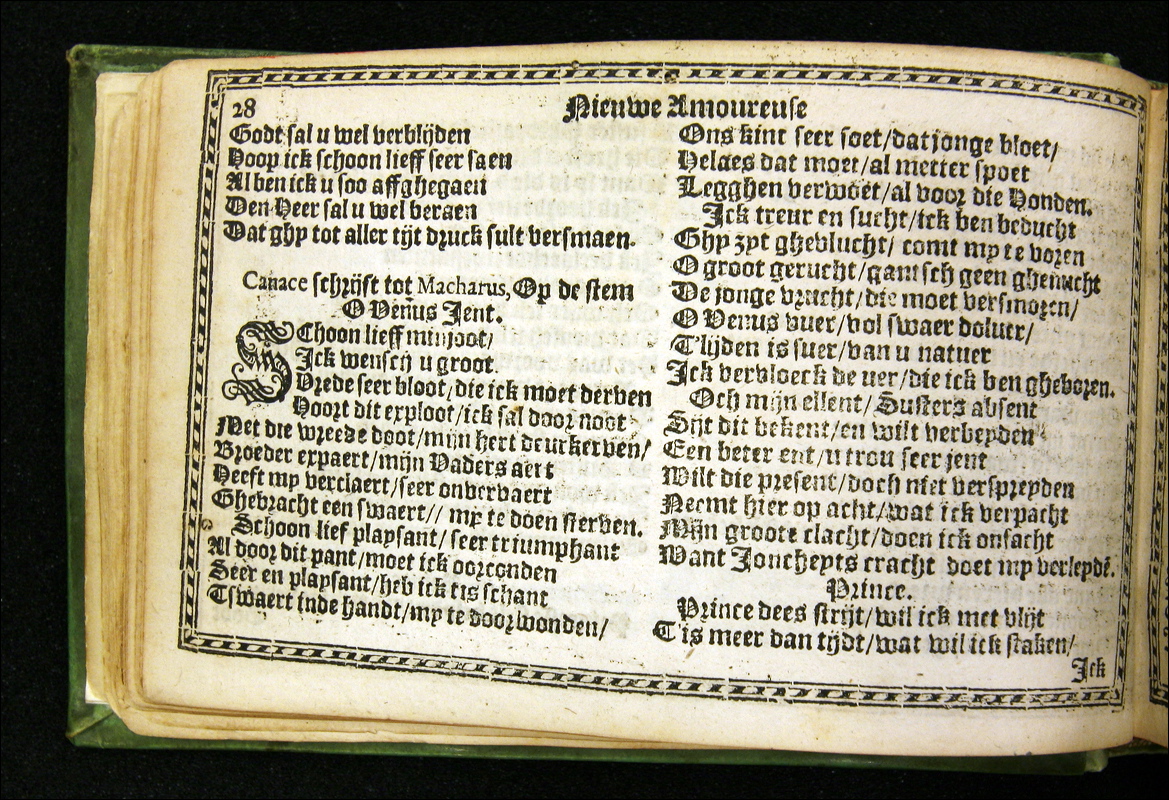 28
Nieuwe Amoureuse
Godt sal u wel verblijden
Hoop ick schoon lieff seer saen
Al ben ick u soo affghegaen
Den Heer sal u wel beraen
Dat ghy tot aller tijt druck sult versmaen.
Canace schrijft tot Macharus, Op de stem
O Venus Jent.
SChoon lieff minjoot/
Ick wensch u groot.
Vrede seer bloot/die ick moet derven
Hoort dit exploot/ick sal door noot
Met die wreede doot/mijn hert deurkerven/
Broeder expaert/mijn Vaders aert
Heeft my verclaert/seer onvervaert
Ghebracht een swaert// my te doen sterven.
Schoon lief playsant/seer triumphant
Al door dit pant/moet ick oorconden
Seer en playsant/heb ick tis schant
Tswaert inde handt/my te doorwonden/
Ons kint seer soet/dat jonge bloet/
Helaes dat moet/al metter spoet
Legghen verwoet/al voor die Honden.
Ick treur en sucht/ick ben beducht
Ghy zyt ghevlucht/comt my te voren
O groot gerucht/gantsch geen ghenucht
De jonge vrucht/die moet versmoren/
O Venus vuer/vol swaer doluer/
T'lijden is suer/van u natuer
Ick vervloeck de uer/die ick ben gheboren.
Och mijn ellent/Susters absent
Sijt dit bekent/en wilt verbeyden
Een beter ent/u trou seer jent
Wilt die present/doch niet verspreyden
Neemt hier op acht/wat ick verpacht
Mijn groote clacht/doen ick onsacht
Want Joncheyts cracht doet my verleydē.
Prince.
Prince dees strijt/wil ick met vlijt
T'is meer dan tijdt/wat wil ick staken/
Ick